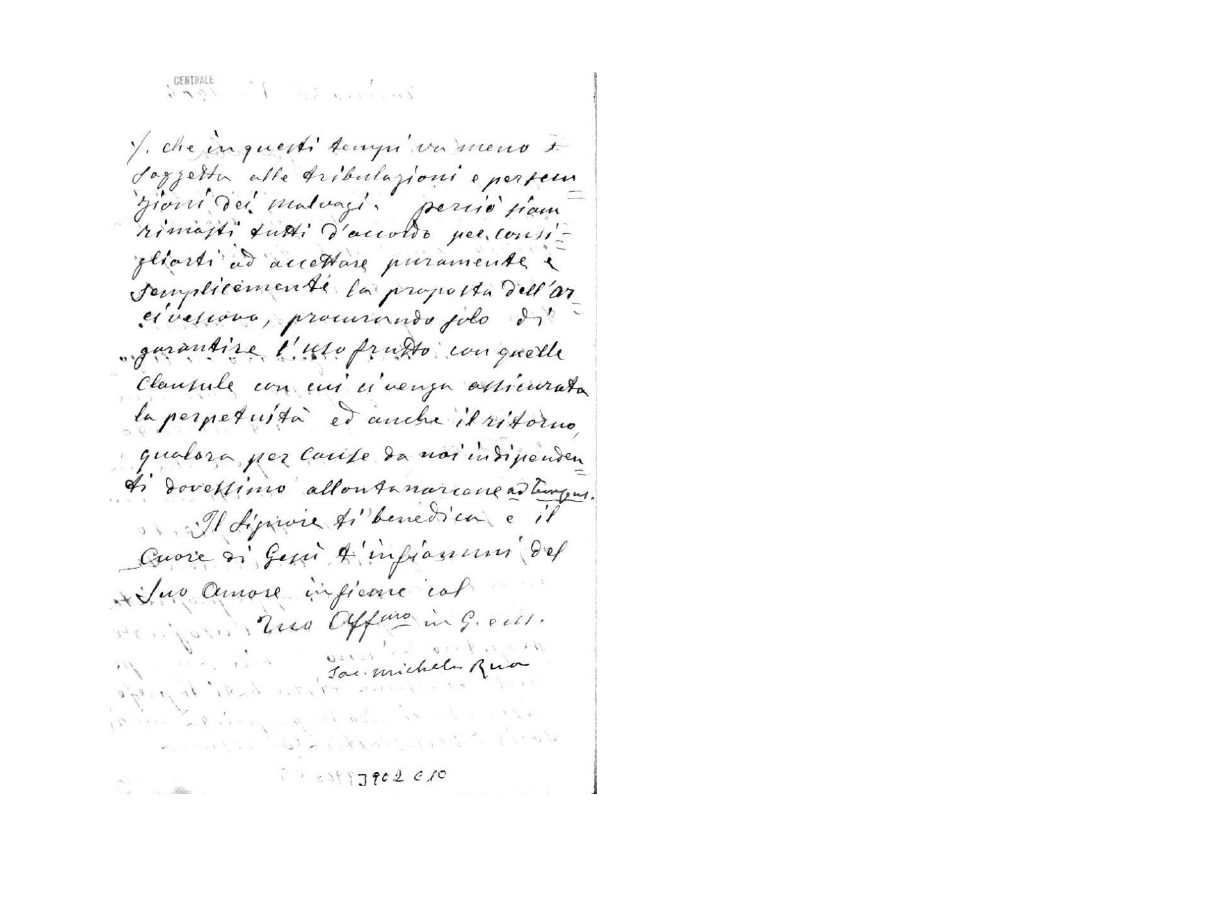 CENTRALE
./. che in questi tempi va meno
soggetta alle tribulazioni e persecu=
zioni dei malvagi. perciò siam
rimasti tutti d'accordo pel consi=
gliarti ad accettare puramente e
semplicemente la proposta dell'ar=
civescovo, procurando solo di
garantire l'usofrutto con quelle
clausule con cui ci venga assicurata
la perpetuità ed anche il ritorno,
qualora per cause da noi indipenden=
ti dovessimo allontanarcene ad tempus.
Il Signore ti benedica e il
Cuore di Gesù t'infiammi del
Suo Amore insieme col
Tuo Aff.mo in G. e M.
Sac. Michele Rua
3902 C10